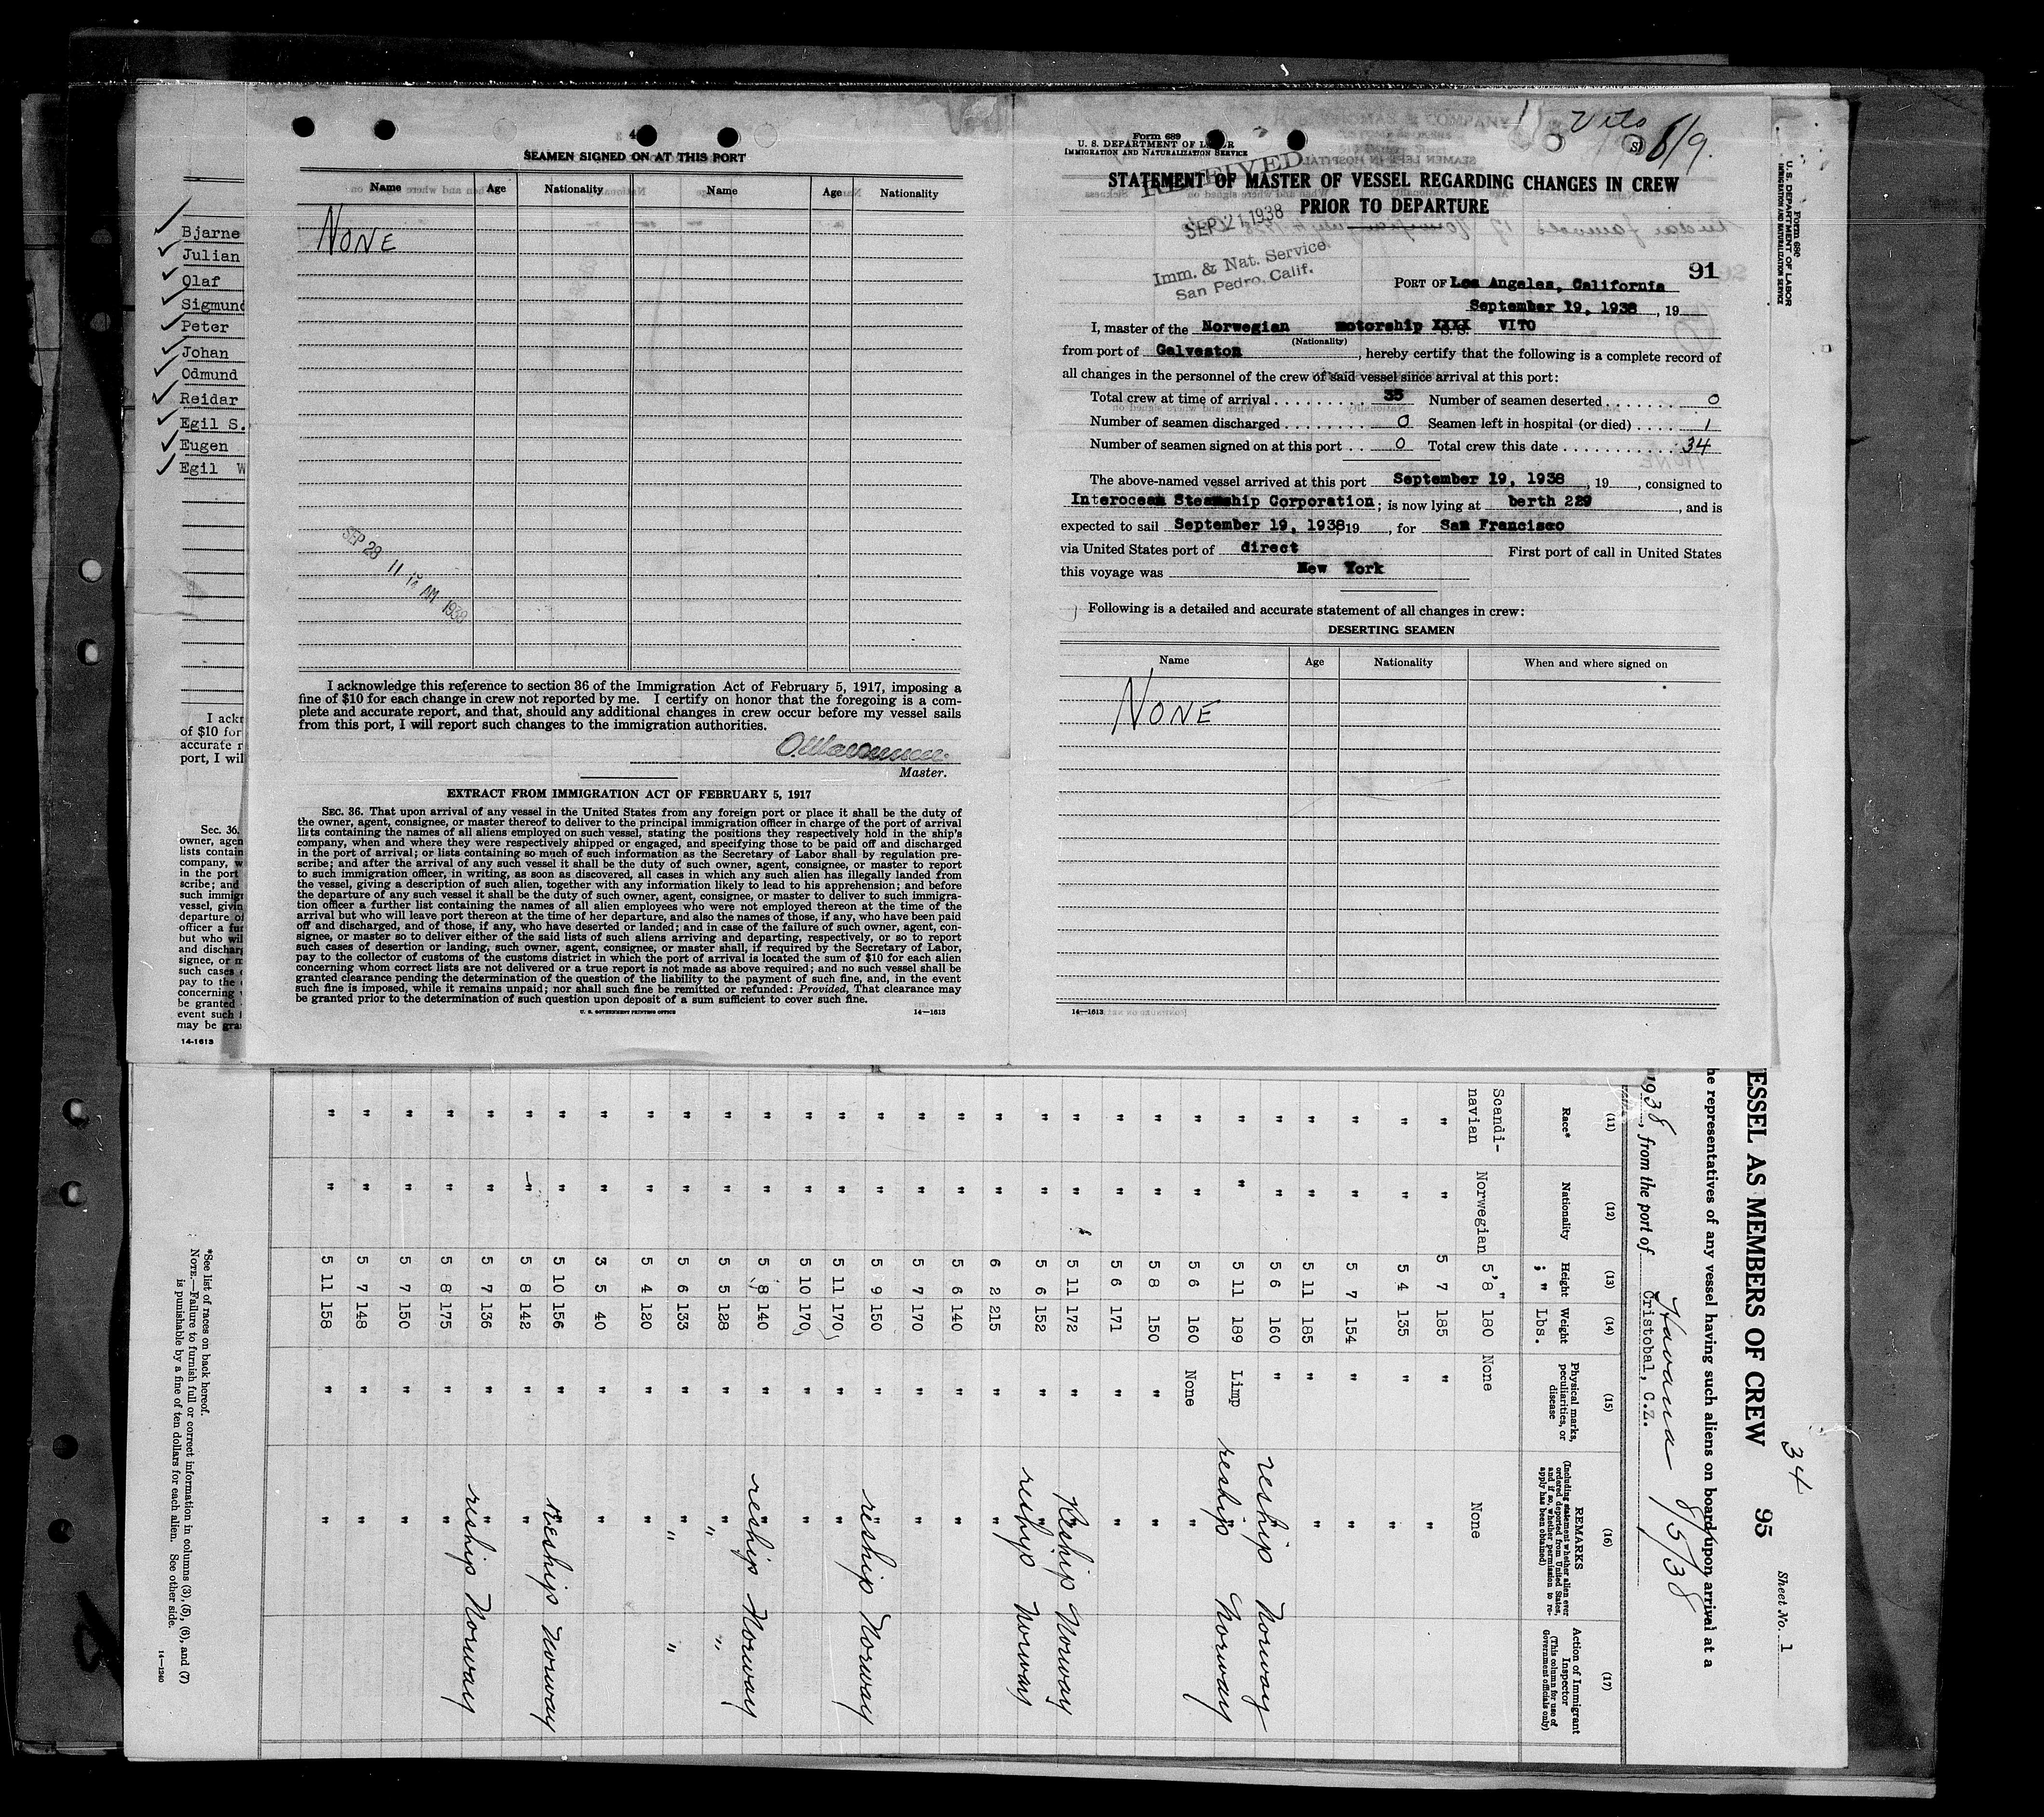 4
SEAMEN SIGNED ON AT THIS PORT
Name Age Nationality Name Age Nationality
NONE
SEP 28 11 14 AM 1938
I acknowledge this reference to section 36 of the Immigration Act of February 5, 1917, imposing a
fine of $10 for each change in crew not reported by me. I certify on honor that the foregoing is a com-
plete and accurate report, and that, should any additional changes in crew occur before my vessel sails
from this port, I will report such changes to the immigration authorities.
Master.
EXTRACT FROM IMMIGRATION ACT OF FEBRUARY 5, 1917
SEC. 36. That upon arrival of any vessel in the United States from any foreign port or place it shall be the duty of
the owner, agent, consignee, or master thereof to deliver to the principal immigration officer in charge of the port of arrival
lists containing the names of all aliens employed on such vessel, stating the positions they respectively hold in the ship's
company, when and where they were respectively shipped or engaged, and specifying those to be paid off and discharged
in the port of arrival; or lists containing so much of such information as the Secretary of Labor shall by regulation pre-
scribe; and after the arrival of any such vessel it shall be the duty of such owner, agent, consignee, or master to report
to such immigration officer, in writing, as soon as discovered, all cases in which any such alien has illegally landed from
the vessel, giving a description of such alien, together with any information likely to lead to his apprehension; and before
the departure of any such vessel it shall be the duty of such owner, agent, consignee, or master to deliver to such immigra-
tion officer a further list containing the names of all alien employees who were not employed thereon at the time of the
arrival but who will leave port thereon at the time of her departure, and also the names of those, if any, who have been paid
off and discharged, and of those, if any, who have deserted or landed; and in case of the failure of such owner, agent, con-
signee, or master so to deliver either of the said lists of such aliens arriving and departing, respectively, or so to report
such cases of desertion or landing, such owner, agent, consignee, or master shall, if required by the Secretary of Labor,
pay to the collector of customs of the customs district in which the port of arrival is located the sum of $10 for each alien
concerning whom correct lists are not delivered or a true report is not made as above required; and no such vessel shall be
granted clearance pending the determination of the question of the liability to the payment of such fine, and, in the event
such fine is imposed, while it remains unpaid; nor shall such fine be remitted or refunded: Provided, That clearance may
be granted prior to the determination of such question upon deposit of a sum sufficient to cover such fine.
U. S. GOVERNMENT PRINTING OFFICE 14—1613
Form 689
U. S. DEPARTMENT OF LABOR
IMMIGRATION AND NATURALIZATION SERVICE
Vito 6/9.
RECEIVED
SEP 21 1938
Imm. & Nat. Service
San Pedro, Calif.
STATEMENT OF MASTER OF VESSEL REGARDING CHANGES IN CREW
PRIOR TO DEPARTURE
91
PORT OF Los Angeles, California
September 19, 1938, 19
I, master of the Norwegian motorship XXXX VITO
(Nationality) S. S.
from port of Galveston, hereby certify that the following is a complete record of
all changes in the personnel of the crew of said vessel since arrival at this port:
Total crew at time of arrival 35 Number of seamen deserted 0
Number of seamen discharged 0 Seamen left in hospital (or died) 1
Number of seamen signed on at this port 0 Total crew this date 34
The above-named vessel arrived at this port September 19, 1938, 19, consigned to
Interocean Steamship Corporation; is now lying at berth 229, and is
expected to sail September 19, 1938, 19, for San Francisco
via United States port of direct First port of call in United States
this voyage was New York
Following is a detailed and accurate statement of all changes in crew:
DESERTING SEAMEN
Name Age Nationality When and where signed on
NONE
14—1613
Form 689
U. S. DEPARTMENT OF LABOR
IMMIGRATION AND NATURALIZATION SERVICE
Bjarne
Julian
Olaf
Sigmund
Peter
Johan
Odmund
Reidar
Egil S.
Eugen
Egil W
I ackr
of $10 for
accurate r
port, I wil
Sec. 36.
owner, agen
lists contain
company, w
in the port
scribe; and
such immigr
vessel, givin
departure of
officer a fur
but who wil
and discharg
signee, or m
such cases
pay to the
concerning
be granted
event such
may be gra
14-1613
34
95
Sheet No. 1
ESSEL AS MEMBERS OF CREW
he representatives of any vessel having such aliens on board upon arrival at a
1938, from the port of Cristobal, C.Z.
Havana 8/5/38
(11) (12) (13) (14) (15) (16) (17)
Race* Nationality Height Weight Physical marks, peculiarities, or disease REMARKS (Including statement whether alien ever ordered deported from United States, and if so, whether permission to reapply has been obtained) Action of Immigrant Inspector (This column for use of Government officials only)
' " Lbs.
Scandi-navian Norwegian 5'8" 180 None None
" " 5 7 185 " "
" " 5 4 135 " "
" " 5 7 154 " "
" " 5 11 185 " "
" " 5 6 160 " " reship Norway
" " 5 11 189 Limp " reship Norway
" " 5 6 160 None "
" " 5 8 150 " "
" " 5 6 171 " "
" " 5 11 172 " " Reship Norway
" " 5 6 152 " " reship Norway
" " 6 2 215 " "
" " 5 6 140 " "
" " 5 7 170 " "
" " 5 9 150 " " reship Norway
" " 5 11 170 " "
" " 5 10 170 " "
" " 5 8 140 " " reship Norway
" " 5 5 128 " " " "
" " 5 6 133 " " " "
" " 5 4 120 " "
" " 3 5 40 " "
" " 5 10 156 " " reship Norway
" " 5 8 142 " "
" " 5 7 136 " " reship Norway
" " 5 8 175 " "
" " 5 7 150 " "
" " 5 7 148 " "
" " 5 11 158 " "
*See list of races on back hereof.
NOTE.—Failure to furnish full or correct information in columns (3), (5), (6), and (7)
is punishable by a fine of ten dollars for each alien. See other side.
14—1240